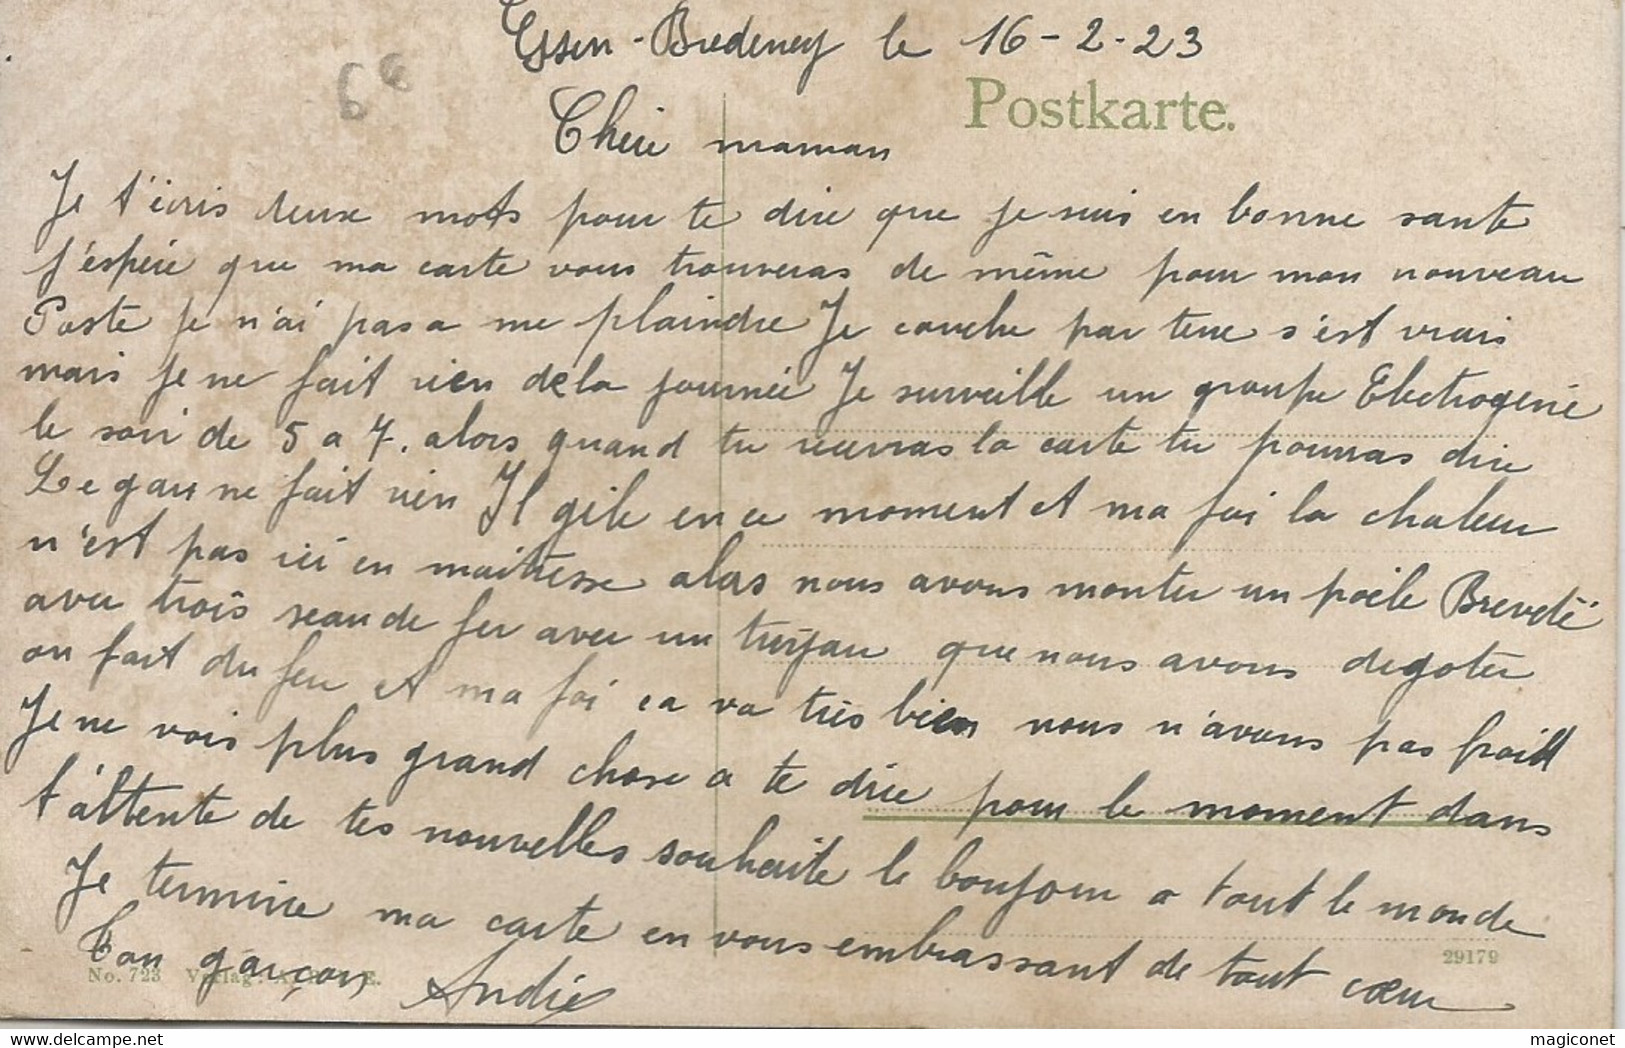 Essen-Bredeney le 16-2-23
6€
Postkarte.
Chere maman
Je t'ecris deux mots pour te dire que je suis en bonne sante
j'espère que ma carte vous trouveras de même pour mon nouveau
Poste je n'ai pas a me plaindre Je couche par terre s'est vrais
mais je ne fait rien de la journée Je surveille un groupe Electrogène
le soir de 5 a 7. alors quand tu recerras la carte tu pourras dire
Le gars ne fait rien Il gèle en ce moment et ma foi la chaleur
n'est pas ici en maitresse alors nous avons monter un poêle Breveté
avec trois seau de fer avec un tuyau que nous avons degoter
on fait du feu et ma foi ca va très bien nous n'avons pas froid
Je ne vois plus grand chose a te dire pour le moment dans
t'attente de tes nouvelles souhaite le bonjour a tout le monde
Je termine ma carte en vous embrassant de tout cœur
Ton garçon André
No. 723 29179
magiconet